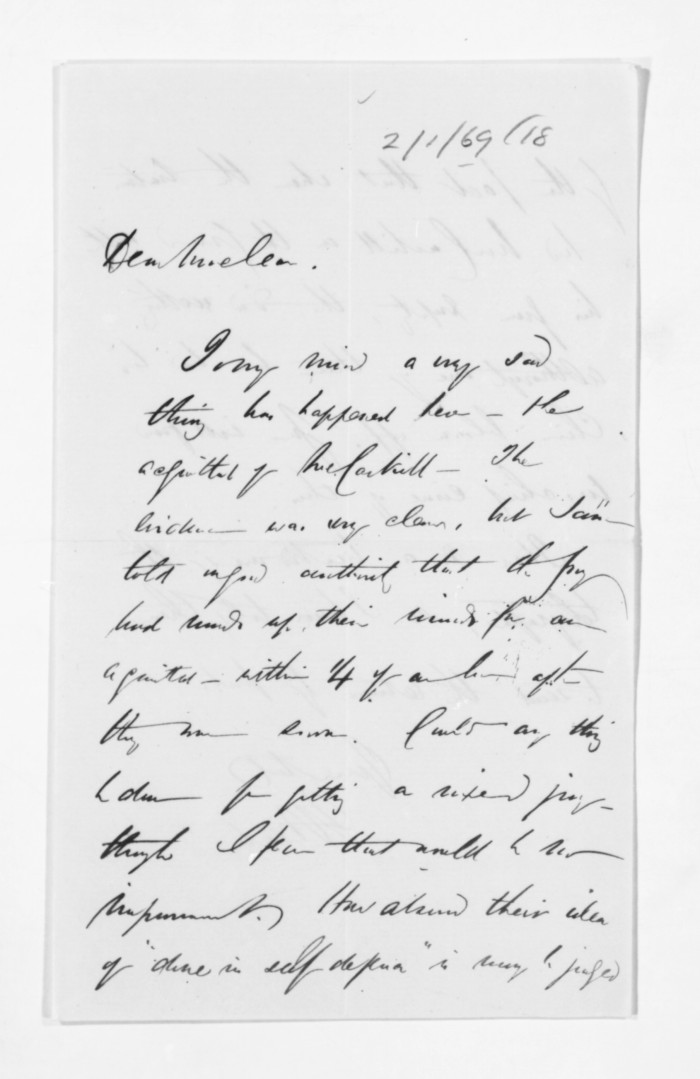 2/1/69 (18
Dear McLean.
To my mind a very sad
thing has happened here - the
acquittal of McCaskill - The
evidence was very clear, but I am
told on good authority that the jury
had made up their minds for an
acquittal - within 1/4 of an hour after
they were sworn. Could any thing
be done for getting a mixed jury -
though I fear that would be no
improvement. How absurd their idea
of "done in self defence" is may be judged